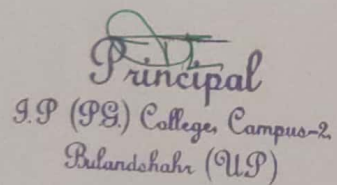 Principal
I.P (PG.) College, Campus-2,
Bulandshahr (UP)